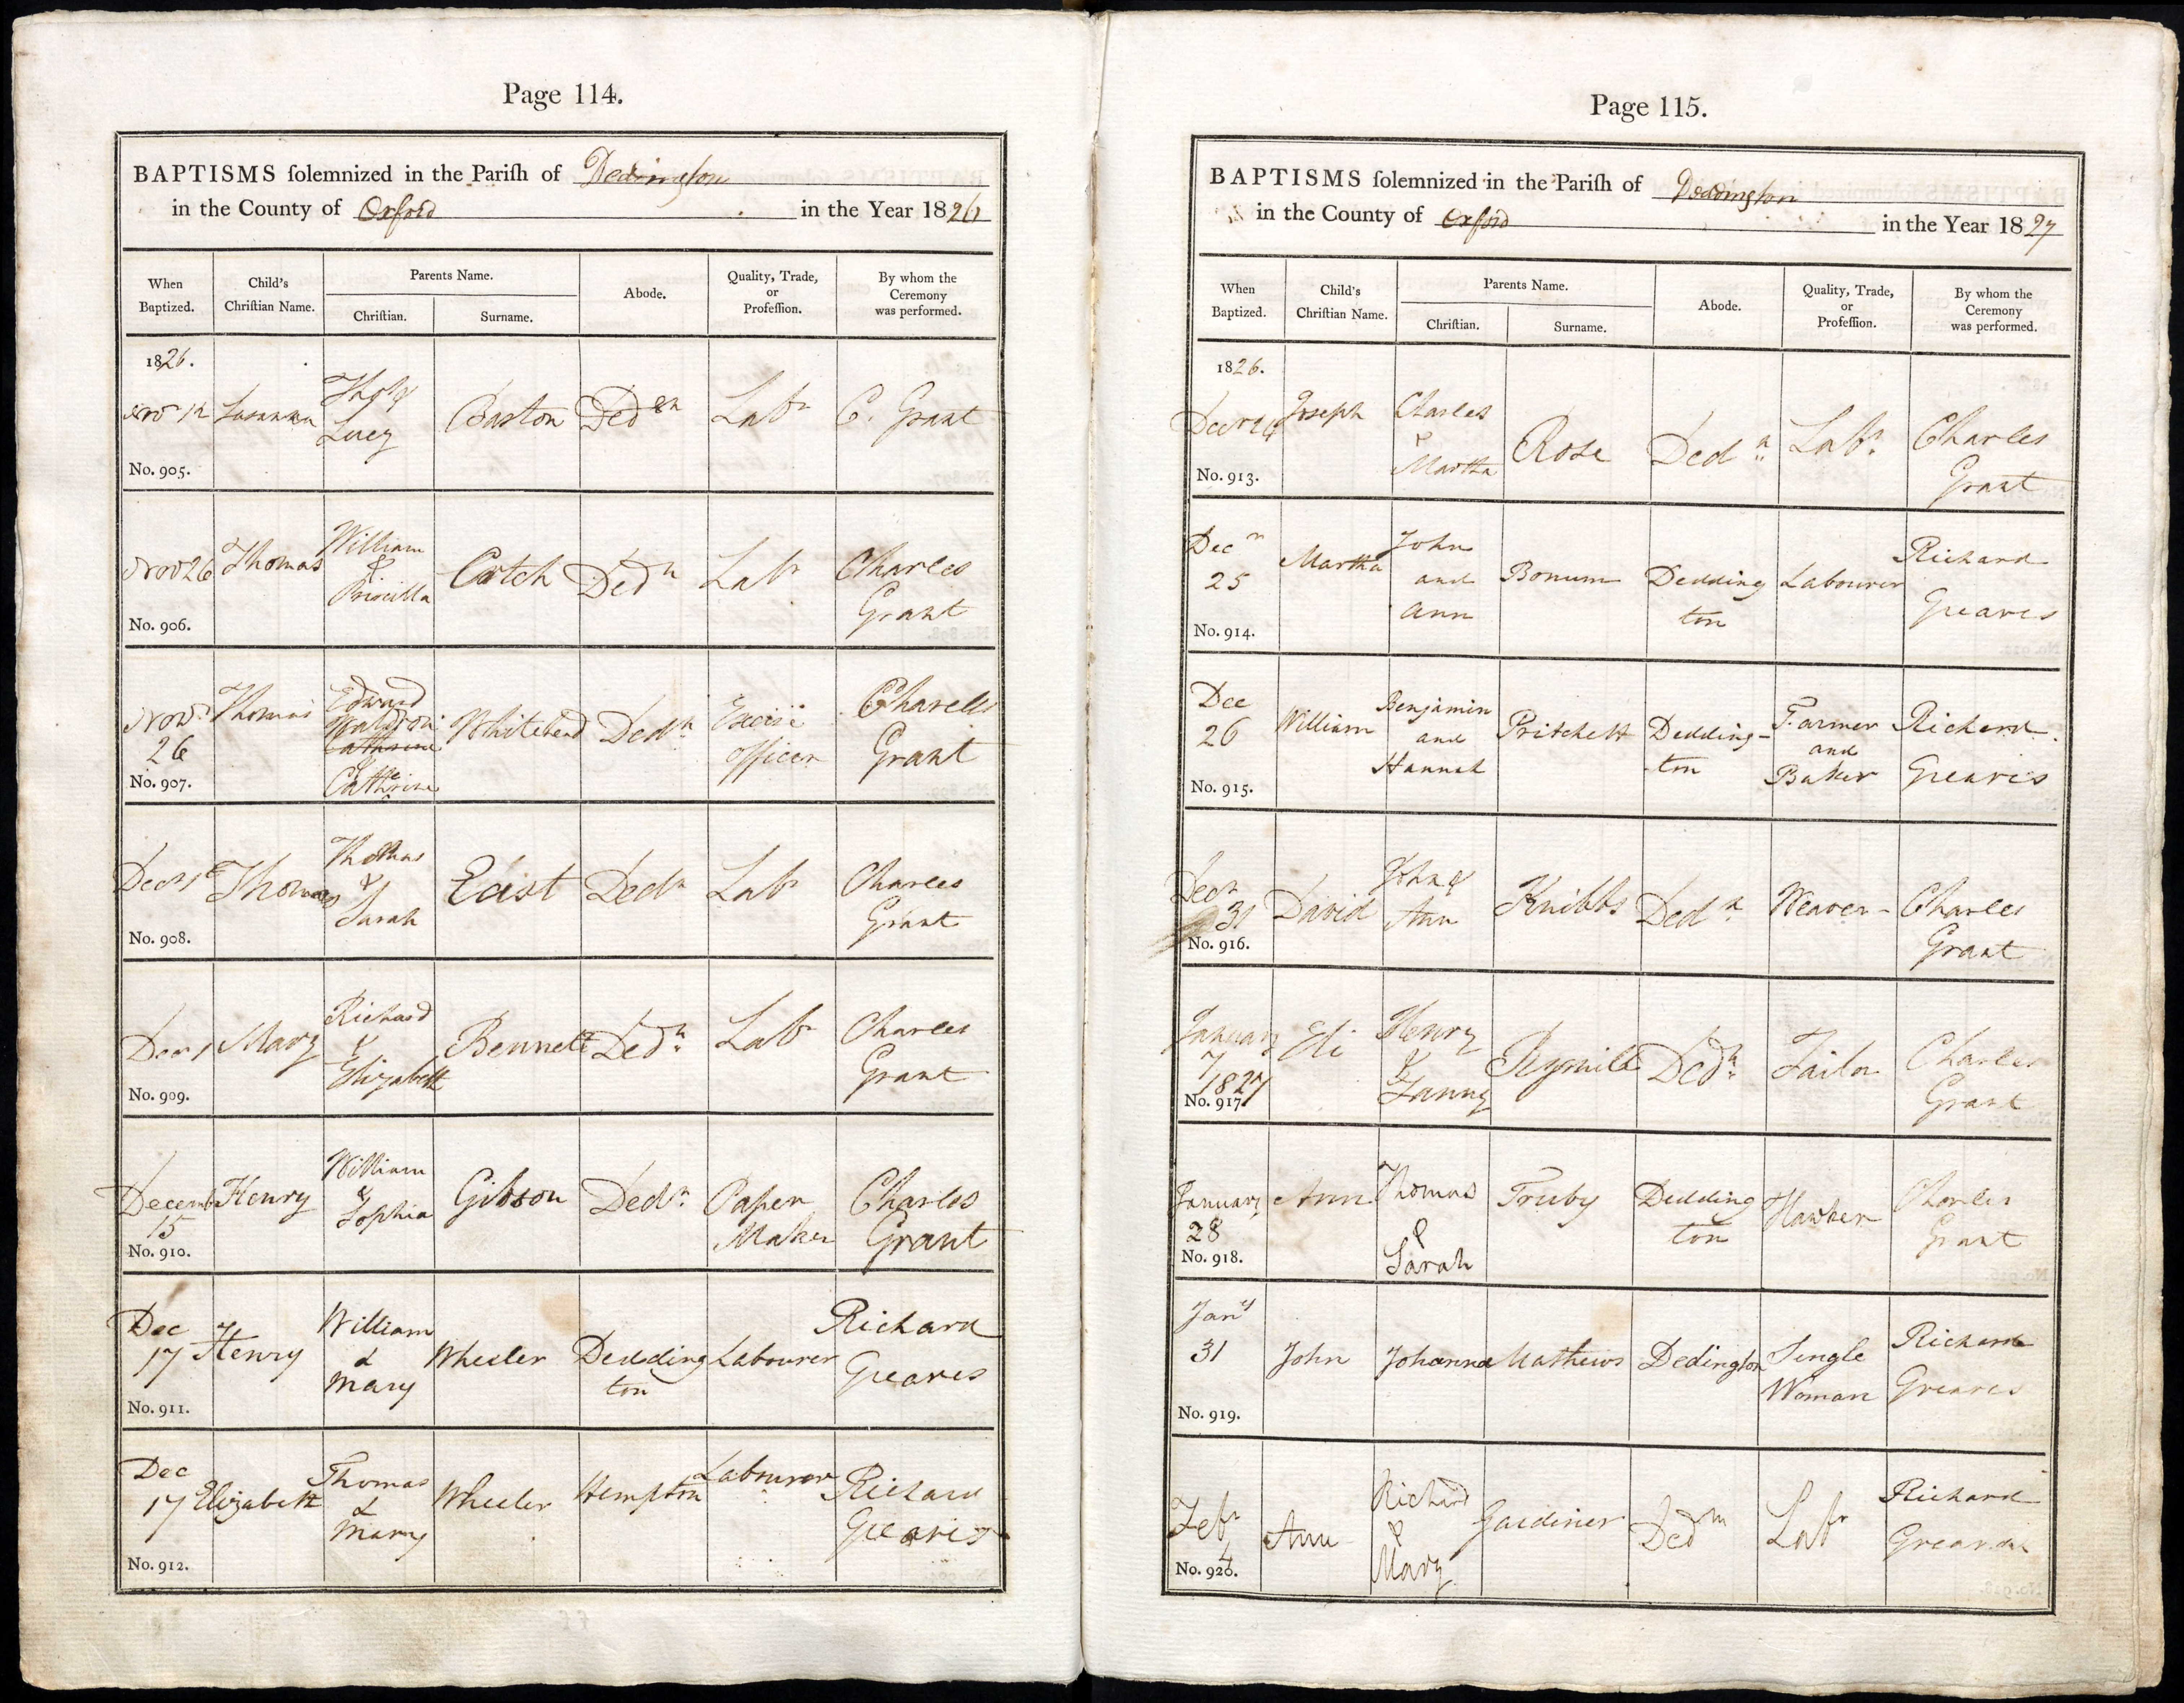 Page 114.
BAPTISMS ſolemnized in the Pariſh of Dedington
in the County of Oxford in the Year 1826
When Baptized.
Child's Chriſtian Name.
Parents Name.
Chriſtian.
Surname.
Abode.
Quality, Trade, or Profeſſion.
By whom the Ceremony was performed.
1826.
Novr 12 Susanna Thos & Lucy Barton Dedgn Labr C. Grant
No. 905.
Nov 26 Thomas William & Priscilla Catch Dedn Labr Charles Grant
No. 906.
Novr 26 Thomas Edward Catherine & Catherine Whitehead Dedn Excise Officer Charles Grant
No. 907.
Decr 1 Thomas Thomas & Sarah East Dedn Labr Charles Grant
No. 908.
Decr 1 Mary Richard & Elizabeth Bennett Dedn Labr Charles Grant
No. 909.
Decemb 15 Henry William & Sophia Gibson Dedn Paper Maker Charles Grant
No. 910.
Dec 17 Henry William & Mary Wheeler Dedding ton Labourer Richard Greaves
No. 911.
Dec 17 Elizabeth Thomas & Mary Wheeler Hempton Labourer Richard Greaves
No. 912.
Page 115.
BAPTISMS ſolemnized in the Pariſh of Deddington
in the County of Oxford in the Year 1827
When Baptized.
Child's Chriſtian Name.
Parents Name.
Chriſtian.
Surname.
Abode.
Quality, Trade, or Profeſſion.
By whom the Ceremony was performed.
1826.
Decr 24 Joseph Charles & Martha Rose Dedn Labr Charles Grant
No. 913.
Decr 25 Martha John and Ann Bonum Dedding ton Labourer Richard Greaves
No. 914.
Dec 26 William Benjamin and Hannah Pritchett Dedding- ton Farmer and Baker Richard Greaves
No. 915.
Decr 31 David John & Ann Knibbs Dedn Weaver Charles Grant
No. 916.
January 7 1827 Eli Henry & Fanny Dedn Tailor Charles Grant
No. 917.
January 28 Ann Thomas & Sarah Truby Dedding ton Hawker Charles Grant
No. 918.
Jany 31 John Johanna Mathews Dedington Single Woman Richard Greaves
No. 919.
Febr 4 Ann Richard & Mary Gardiner Dedn Labr Richard Greaves
No. 920.